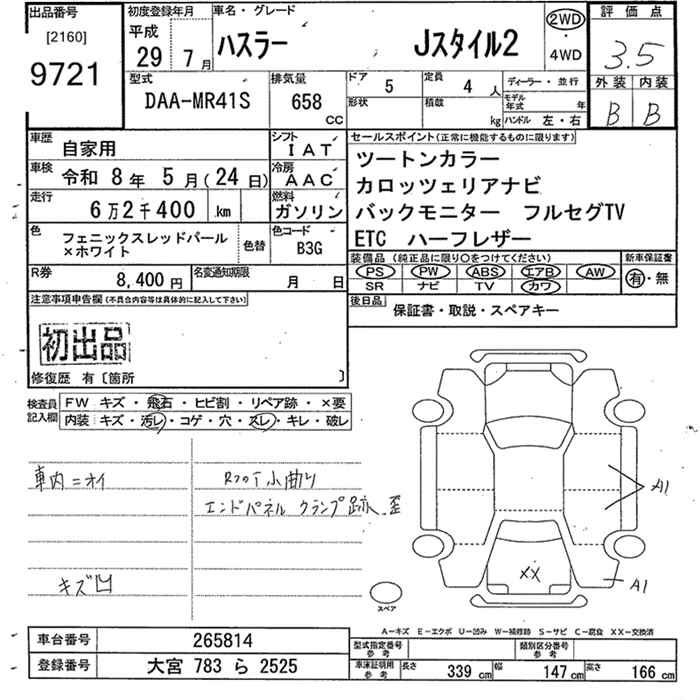 出品番号
[2160]
9721
初度登録年月
平成
29年 7月
車名・グレード
ハスラー Jスタイル2
2WD
・
4WD
評価点
3.5
外装 内装
B B
型式
DAA-MR41S
排気量
658
CC
ドア 5
形状
定員 4 人
積載 kg
ディーラー・並行
モデル年式 年
ハンドル 左・右
車歴 自家用
シフト IAT
車検 令和 8年 5月(24日)
冷房 AAC
走行 6万2千400 km
燃料 ガソリン
色 フェニックスレッドパール
×ホワイト
色替
色コード
B3G
R券 8,400円
名変通知期限 月 日
セールスポイント(正常に機能するものに限ります)
ツートンカラー
カロッツェリアナビ
バックモニター フルセグTV
ETC ハーフレザー
装備品 (純正品に限り○をつけてください)
PS PW ABS エアB AW
SR ナビ TV カワ
新車保証書
有・無
後日品
保証書・取説・スペアキー
注意事項申告欄(不具合内容等は具体的に記入して下さい)
初出品
修復歴 有〔箇所 〕
検査員記入欄
FW キズ・飛石・ヒビ割・リペア跡・×要
内装 キズ・汚レ・コゲ・穴・スレ・キレ・破レ
車内ニオイ
キズ凹
Rフロア小曲り
エンドパネル クランプ跡、歪
A1
XX
A1
スペア
A-キズ E-エクボ U-凹み W-補修跡 S-サビ C-腐食 XX-交換済
車台番号 265814
登録番号 大宮 783 ら 2525
型式指定番号 参考
類別区分番号 参考
車庫証明用 参考
長さ 339 cm 幅 147 cm 高さ 166 cm